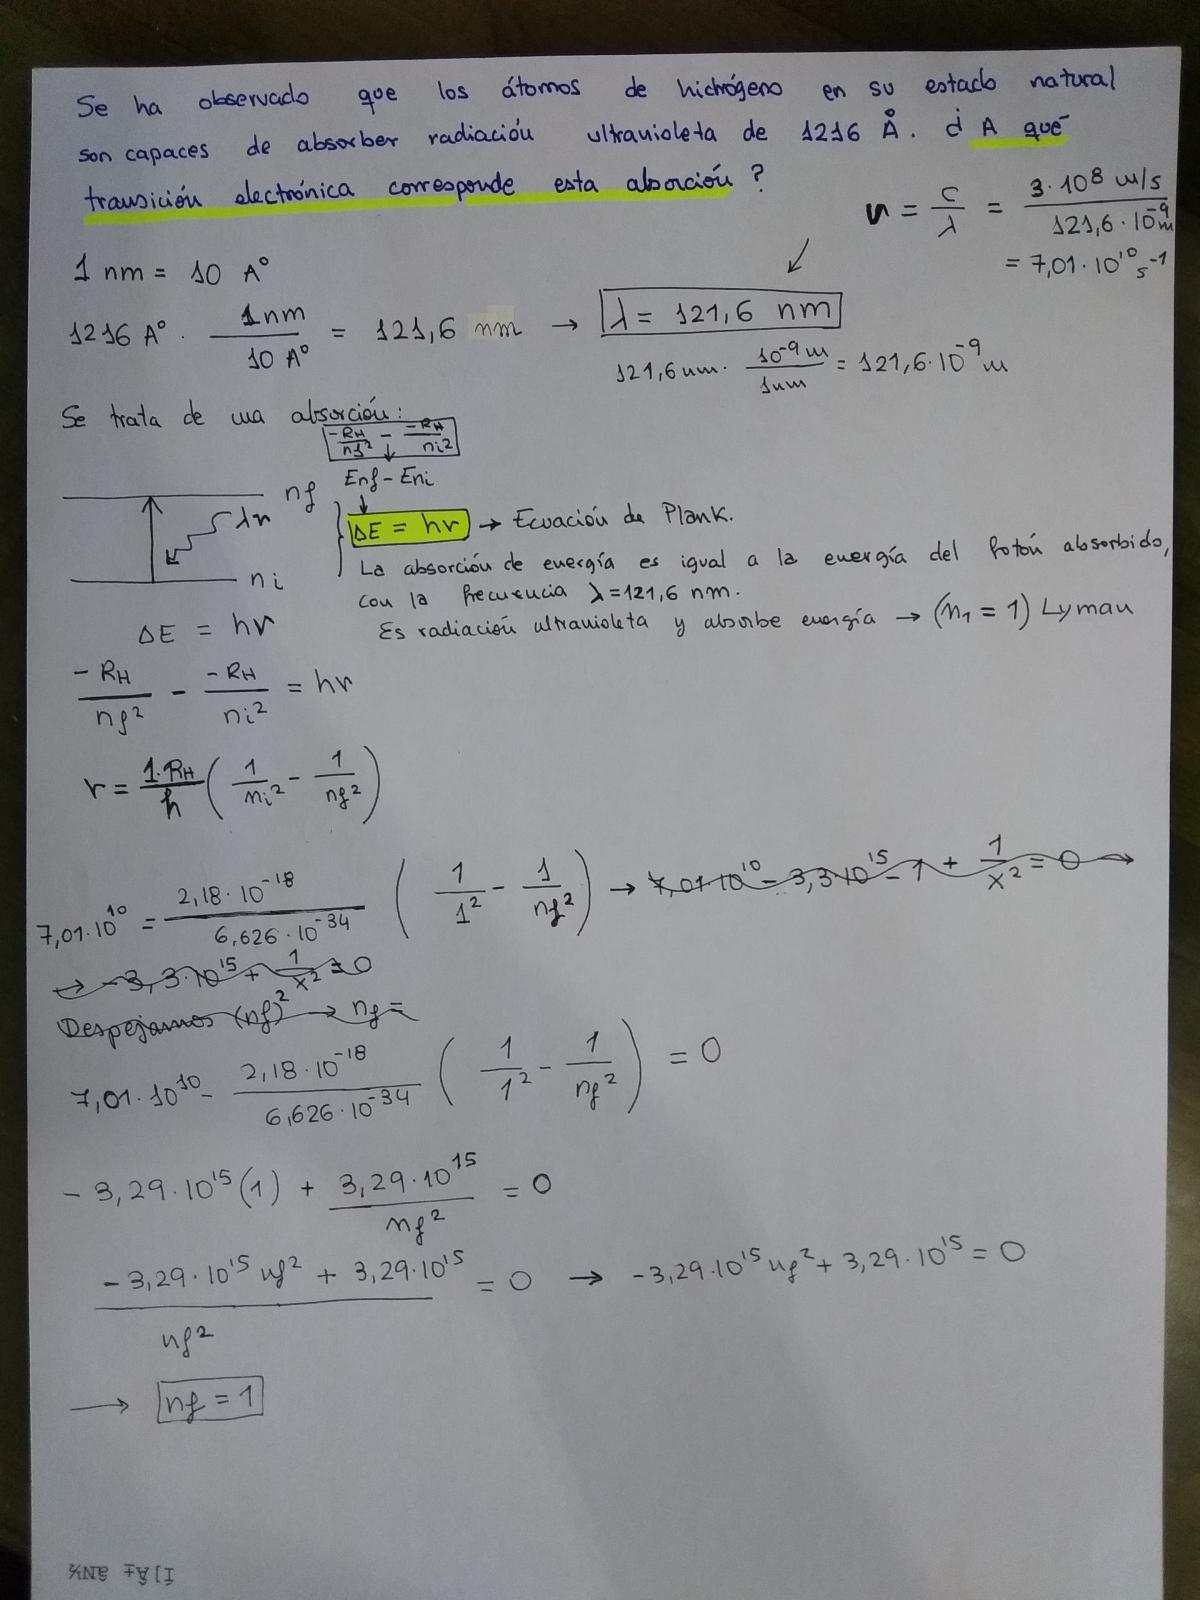 Se ha observado que los átomos de hidrógeno en su estado natural
son capaces de absorber radiación ultravioleta de 1216 Å. ¿A qué
transición electrónica corresponde esta absorción?
ν = c/λ = 3·10^8 m/s / 121,6·10^-9 m
= 7,01·10^10 s^-1
1 nm = 10 A°
1216 A° · 1nm / 10 A° = 121,6 nm → λ = 121,6 nm
121,6 nm · 10^-9 m / 1nm = 121,6·10^-9 m
Se trata de una absorción:
-RH/nf² - -RH/ni²
Enf - Eni
nf
λr
ΔE = hr → Ecuación de Plank.
ni
La absorción de energía es igual a la energía del fotón absorbido,
con la frecuencia λ=121,6 nm.
Es radiación ultravioleta y absorbe energía → (n1 = 1) Lyman
ΔE = hr
-RH/nf² - -RH/ni² = hr
r = 1·RH/h (1/ni² - 1/nf²)
7,01·10^10 = 2,18·10^-18 / 6,626·10^-34 (1/1² - 1/nf²) → 7,01·10^10 - 3,3·10^15 - 1 + 1/x² = 0 →
→ -3,3·10^15 + 1/x² = 0
Despejamos (nf)² → nf =
7,01·10^10 - 2,18·10^-18 / 6,626·10^-34 (1/1² - 1/nf²) = 0
- 3,29·10^15 (1) + 3,29·10^15 / nf² = 0
-3,29·10^15 nf² + 3,29·10^15 / nf² = 0 → -3,29·10^15 nf² + 3,29·10^15 = 0
→ nf = 1